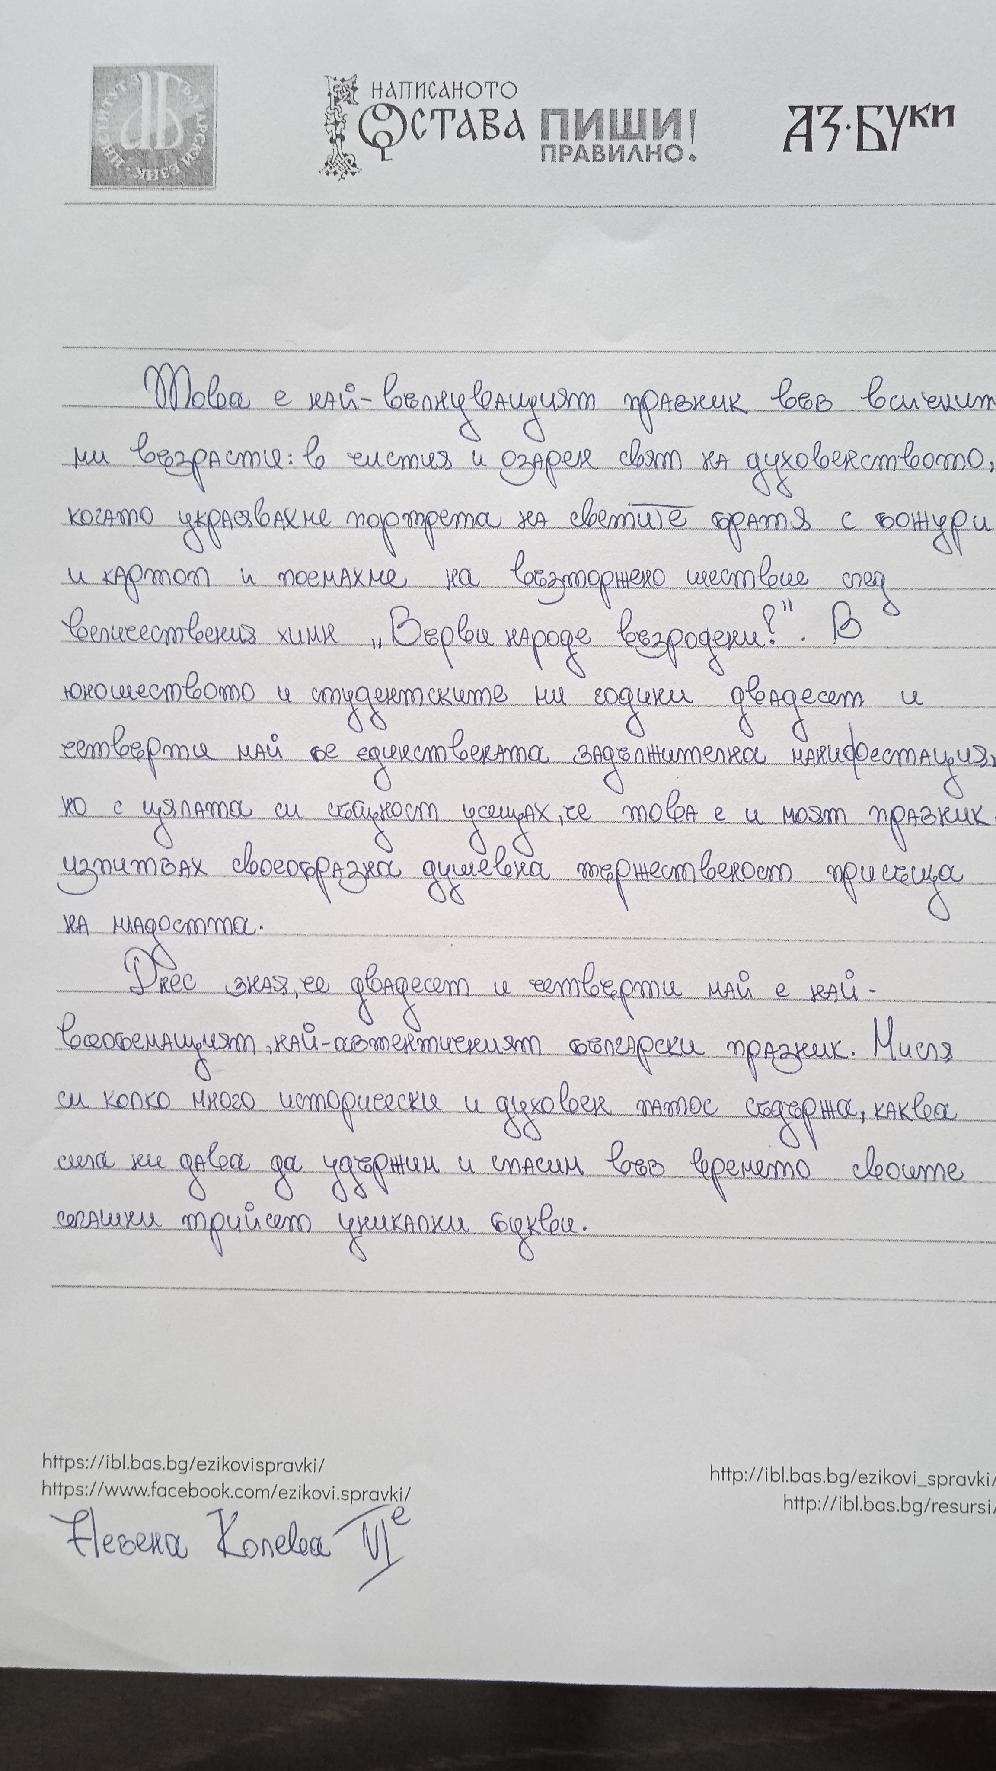 ИНСТИТУТ ЗА БЪЛГАРСКИ ЕЗИК
НАПИСАНОТО
ОСТАВА ПИШИ
ПРАВИЛНО!
АЗ·БУКИ
Това е най-вълнуващият празник във всичкит
ми възрасти: в чистия и озарен свят на духовенството,
когато украсявахме портрета на светите братя с божури
и картоп и поемахме на въвторжено шествие след
величествения химн „Върви народе възродени?". В
юношеството и студентските ни години двадесет и
четвърти май бе единствената задължителна манифестация,
но с цялата си същност усещах, че това е и моят празник.
изпитвах своеобразна душевна тържественост присъща
на младостта.
Днес зная, че двадесет и четвърти май е най-
всеобемащият, най-автентичният български празник. Мисля
си колко много исторически и духовен патос съдържа, каква
сила ни дава да удържим и спасим във времето своите
сегашни трийсет уникални букви.
https://ibl.bas.bg/ezikovispravki/
http://ibl.bas.bg/ezikovi_spravki/
https://www.facebook.com/ezikovi.spravki/
http://ibl.bas.bg/resursi/
Невена Колева VIе